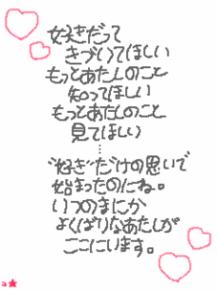 好きだって
きづいてほしい
もっとあたしのこと
知ってほしい
もっとあたしのこと
見てほしい
…
"好き"だけの思いで
始まったのにね。
いつのまにか
よくばりなあたしが
ここにいます。
a★